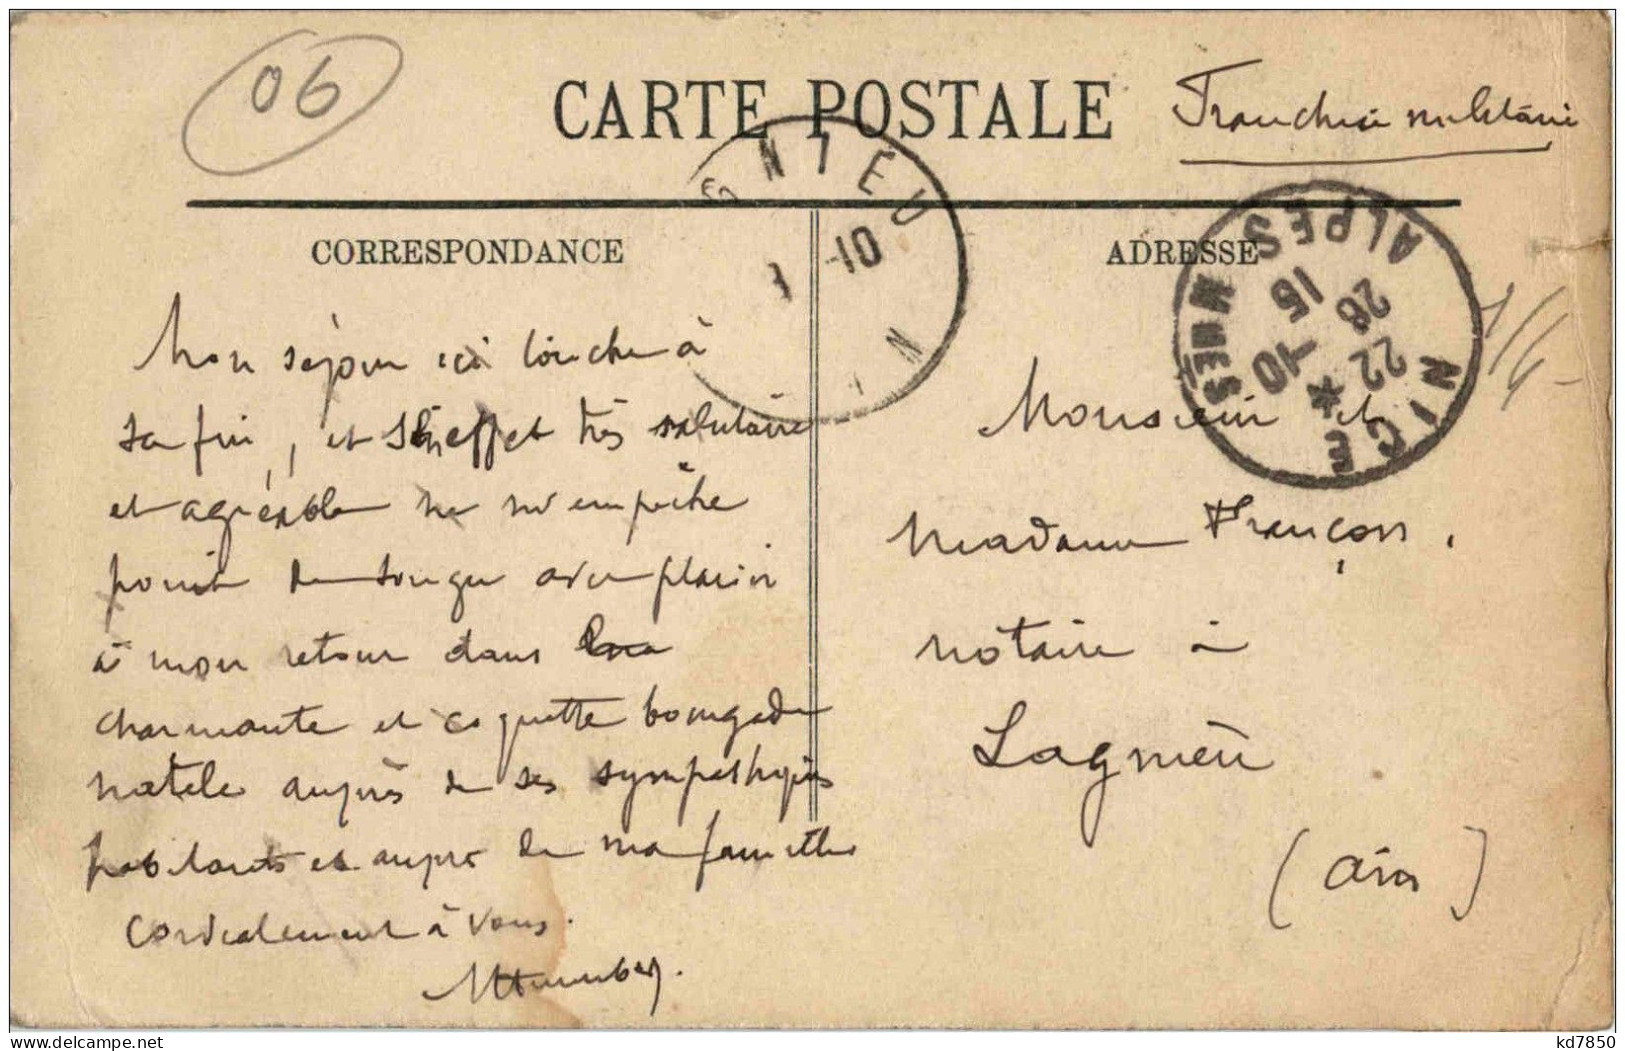 06
CARTE POSTALE
Franchise militaire
CORRESPONDANCE
ADRESSE
GNIEU
1 -10
N
NICE
ALPES MMES
22 * 28
15 -10
Mon séjour ici touche à
sa fin, et son effet très salutaire
et agréable ne m'empêche
point de songer avec plaisir
à mon retour dans
charmante et coquette bourgade
natale auprès de ses sympathiques
habitants et auprès de ma famille
Cordialement à vous.
Monsieur et
Madame Françon,
notaire à
Lagnieu
(Ain)
delcampe.net
kd7850